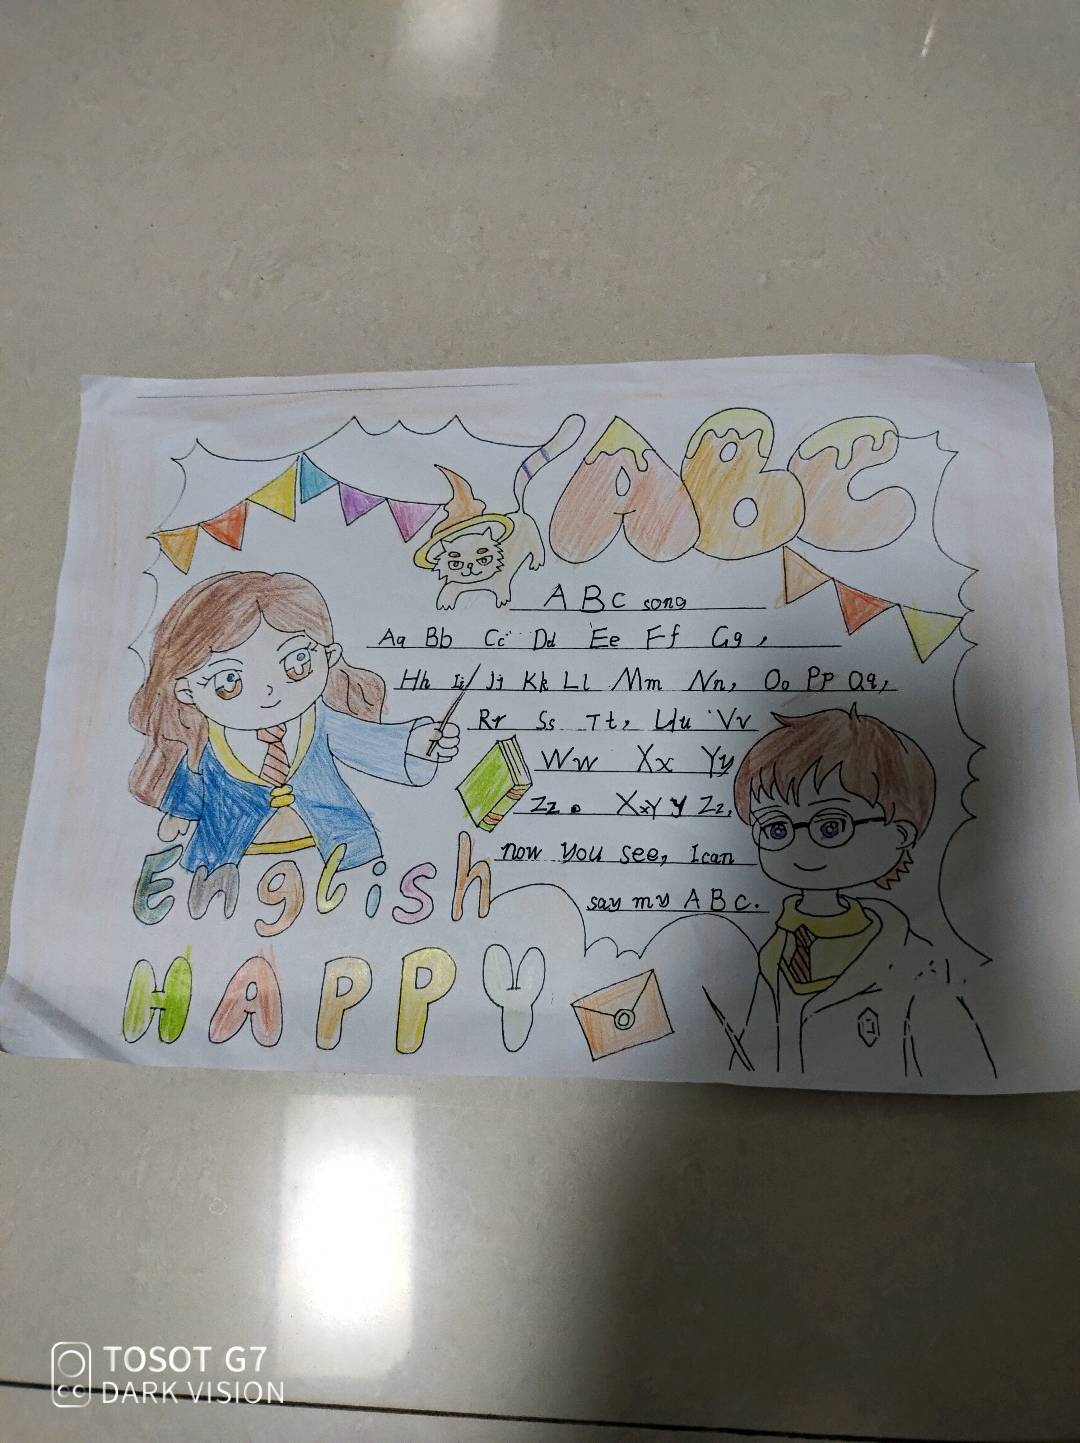 ABC
ABC song
Aa Bb Cc Dd Ee Ff Gg,
Hh Ii Jj Kk Ll Mm Nn, Oo Pp Qq,
Rr Ss Tt, Uu Vv
Ww Xx Yy
Zz. Xx Yy Zz,
now you see, I can
say my ABC.
English
HAPPY
TOSOT G7
DARK VISION